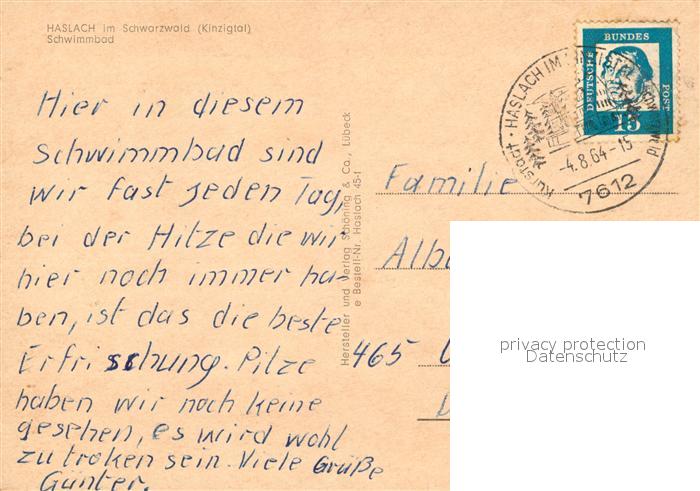 HASLACH im Schwarzwald (Kinzigtal)
Schwimmbad
Hier in diesem
Schwimmbad sind
wir fast jeden Tag,
bei der Hitze die wir
hier noch immer ha-
ben, ist das die beste
Erfrischung. Pilze
haben wir noch keine
gesehen, es wird wohl
zu troken sein. Viele Grüße
Günter.
Hersteller und Verlag Schöning & Co., Lübeck
e Bestell-Nr. Haslach 45-1
DEUTSCHE BUNDES POST
15
Kurstadt · HASLACH IM
-4.8.64-15
7612
Familie
Alb
465
privacy protection
Datenschutz